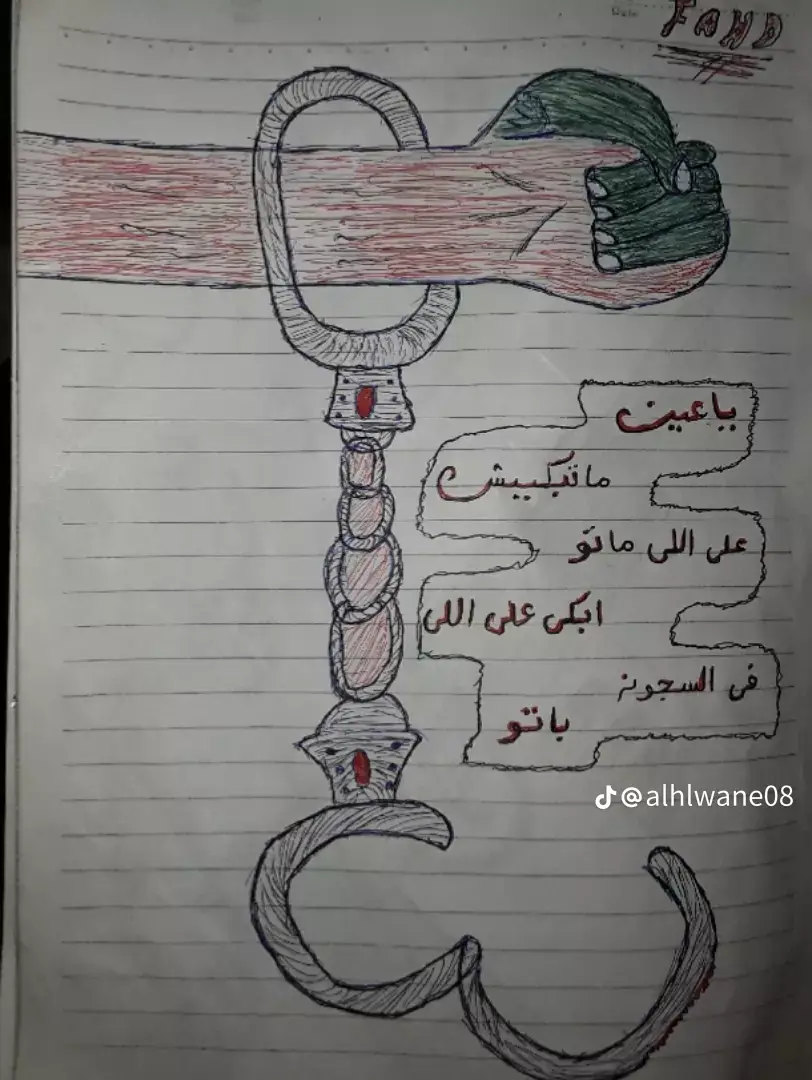 Date
FAHD
ياعين
ماتبكييش
على اللى ماتو
ابكى على اللى
فى السجون
باتو
@alhlwane08